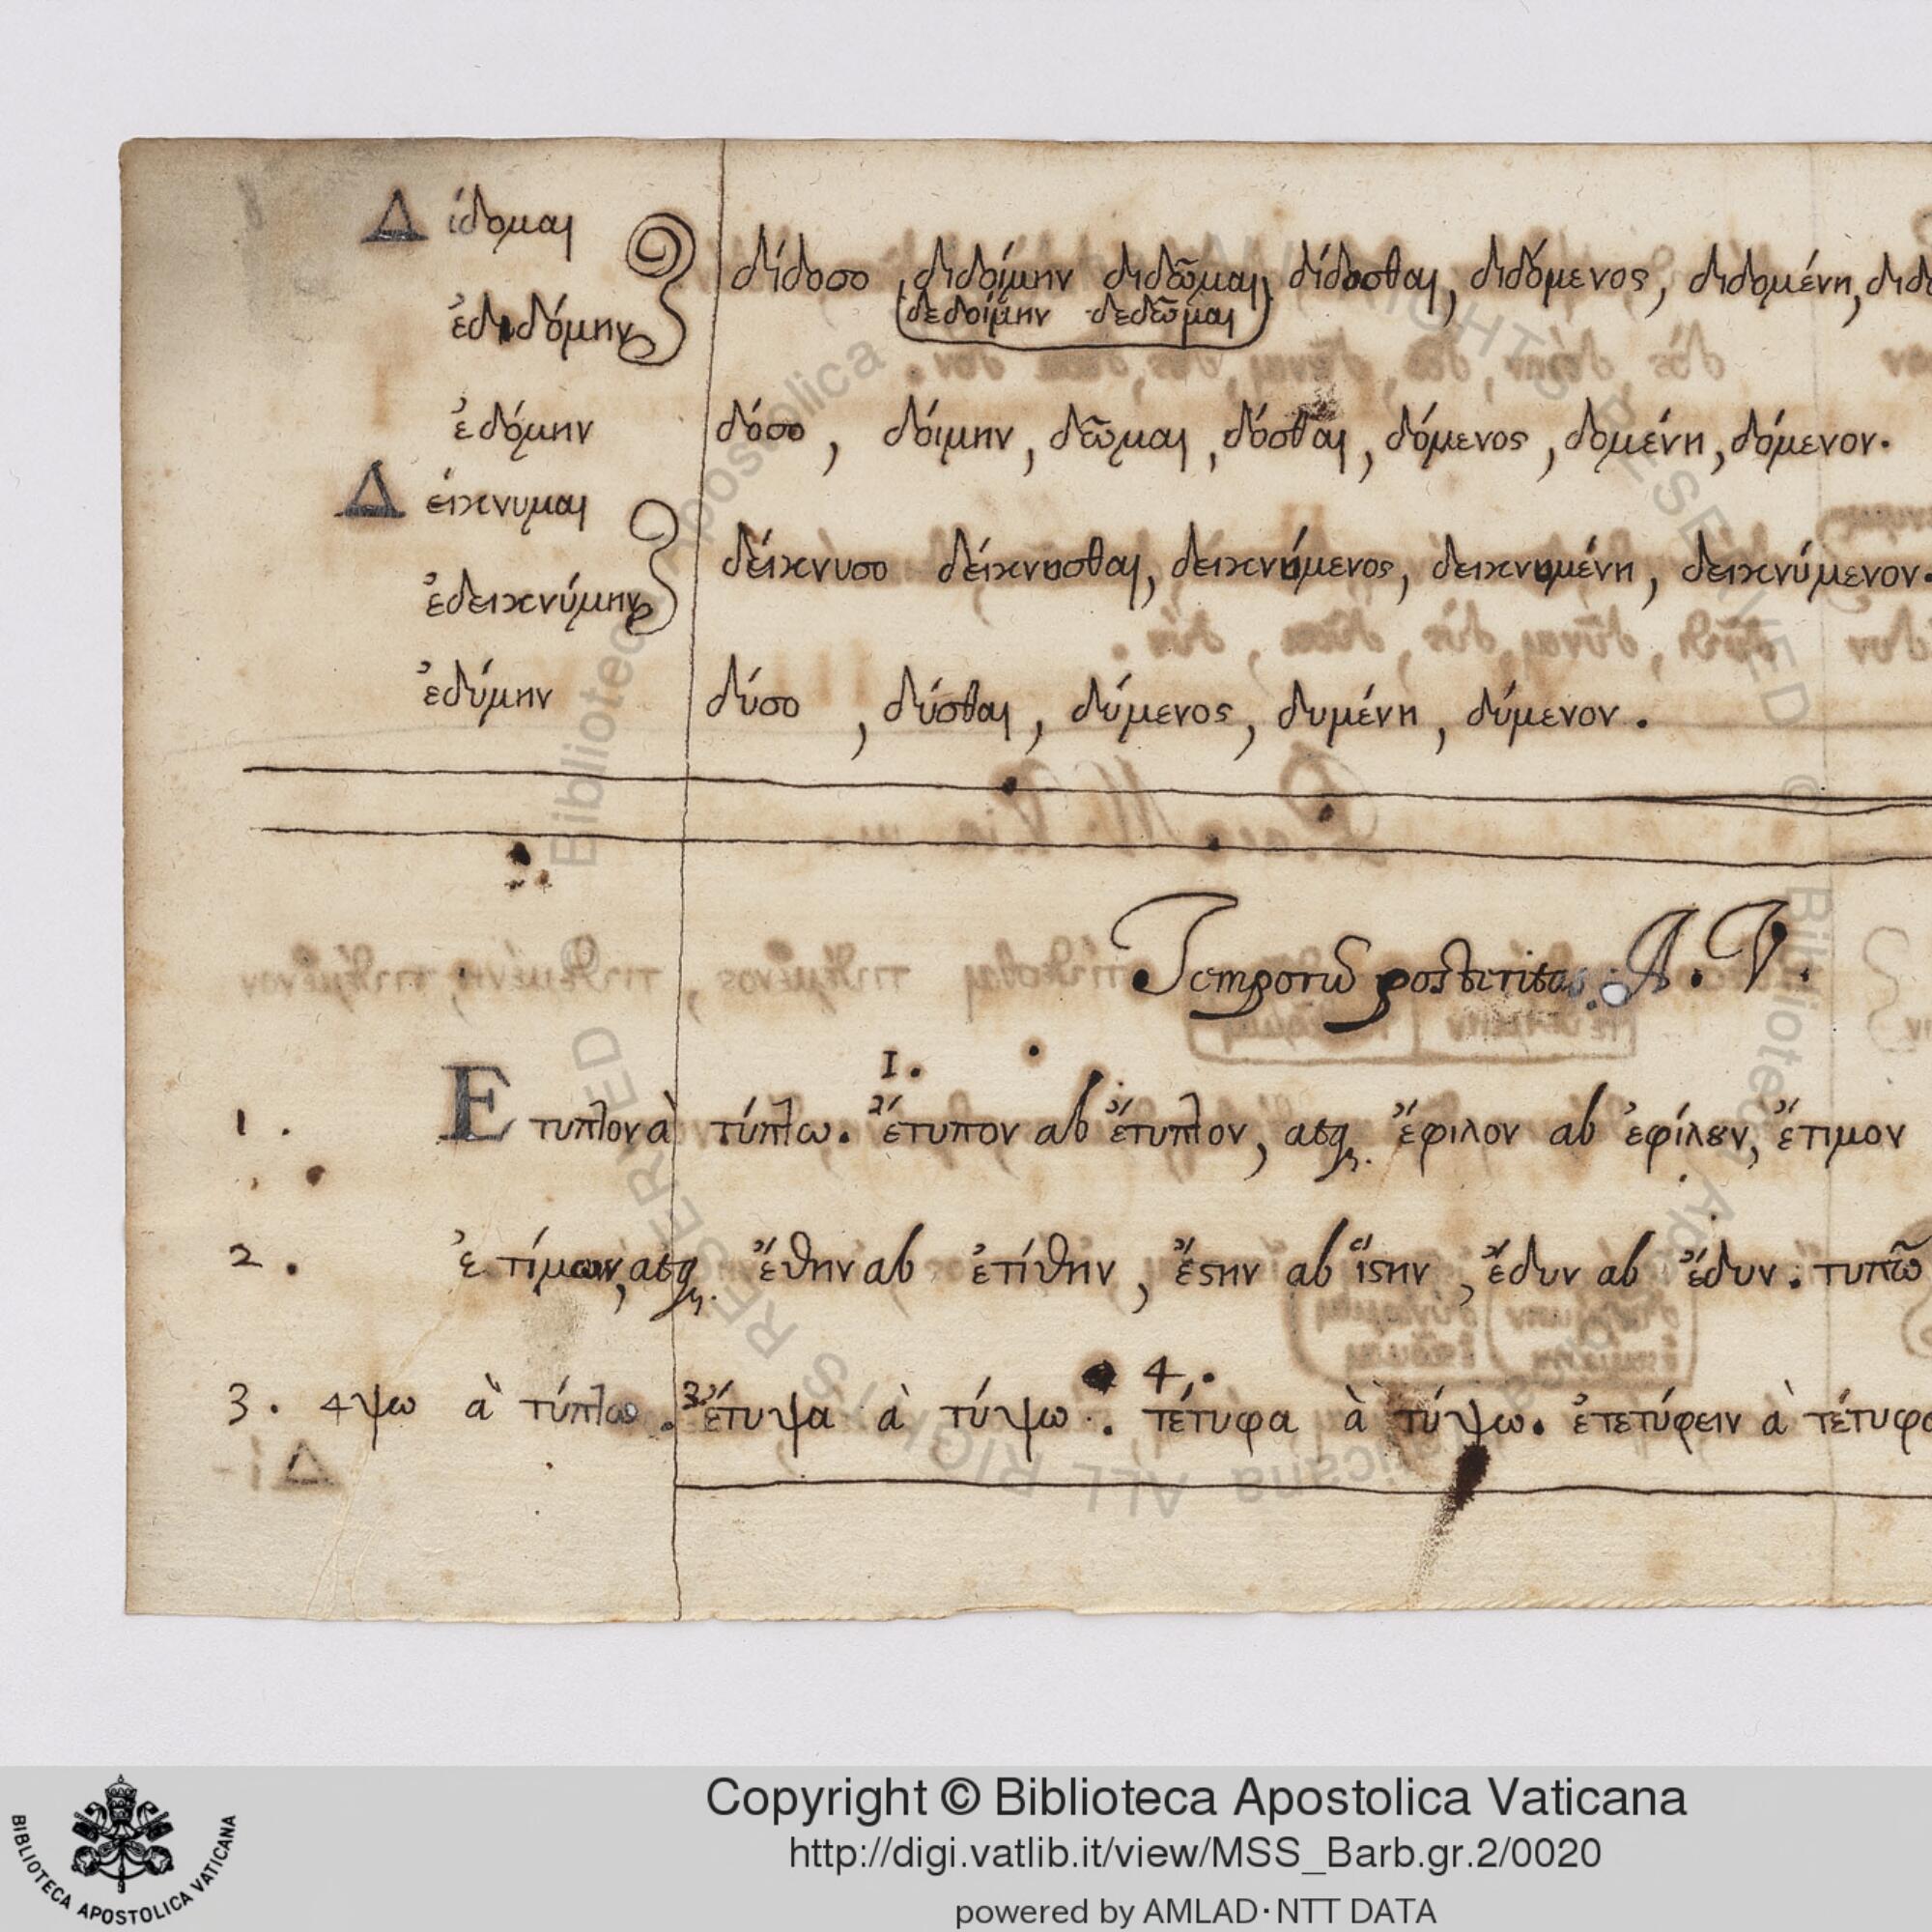 Δ ίδομαι
δίδοσο, διδοίμην διδῶμαι, δίδοσθαι, διδόμενος, διδομένη,
δεδοίμην δεδῶμαι
ἐδιδόμην
ἐδόμην δόσο, δόιμην, δῶμαι, δόσθαι, δόμενος, δομένη, δόμενον.
Δ είκνυμαι
δείκνυσο δείκνυσθαι, δεικνύμενος, δεικνυμένη, δεικνύμενον.
ἐδεικνύμην
ἐδύμην δύσο, δύσθαι, δύμενος, δυμένη, δύμενον.
Temporū posteritas. A. V.
1.
1. E τυπτον à τύπτω. 2 ἔτυπον ab ἔτυπτον, atq. ἔφιλον ab ἐφίλȣν, ἔτιμον
2. ἐτίμων, atq. ἔθην ab ἐτίθην, ἔϛην ab ἵϛην, ἔδυν ab ἔδυν. τυπῶ
4.
3. 4ψω à τύπτω. 3 ἔτυψα à τύψω. τέτυφα à τύψω. ἐτετύφειν à τέτυφα
Copyright © Biblioteca Apostolica Vaticana
http://digi.vatlib.it/view/MSS_Barb.gr.2/0020
powered by AMLAD·NTT DATA
BIBLIOTECA APOSTOLICA VATICANA